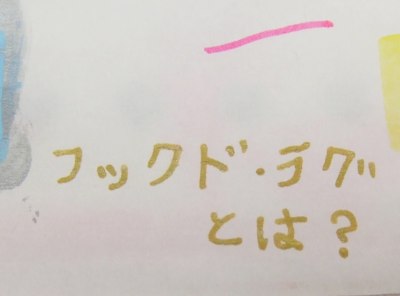 フックド・ラグ
とは？